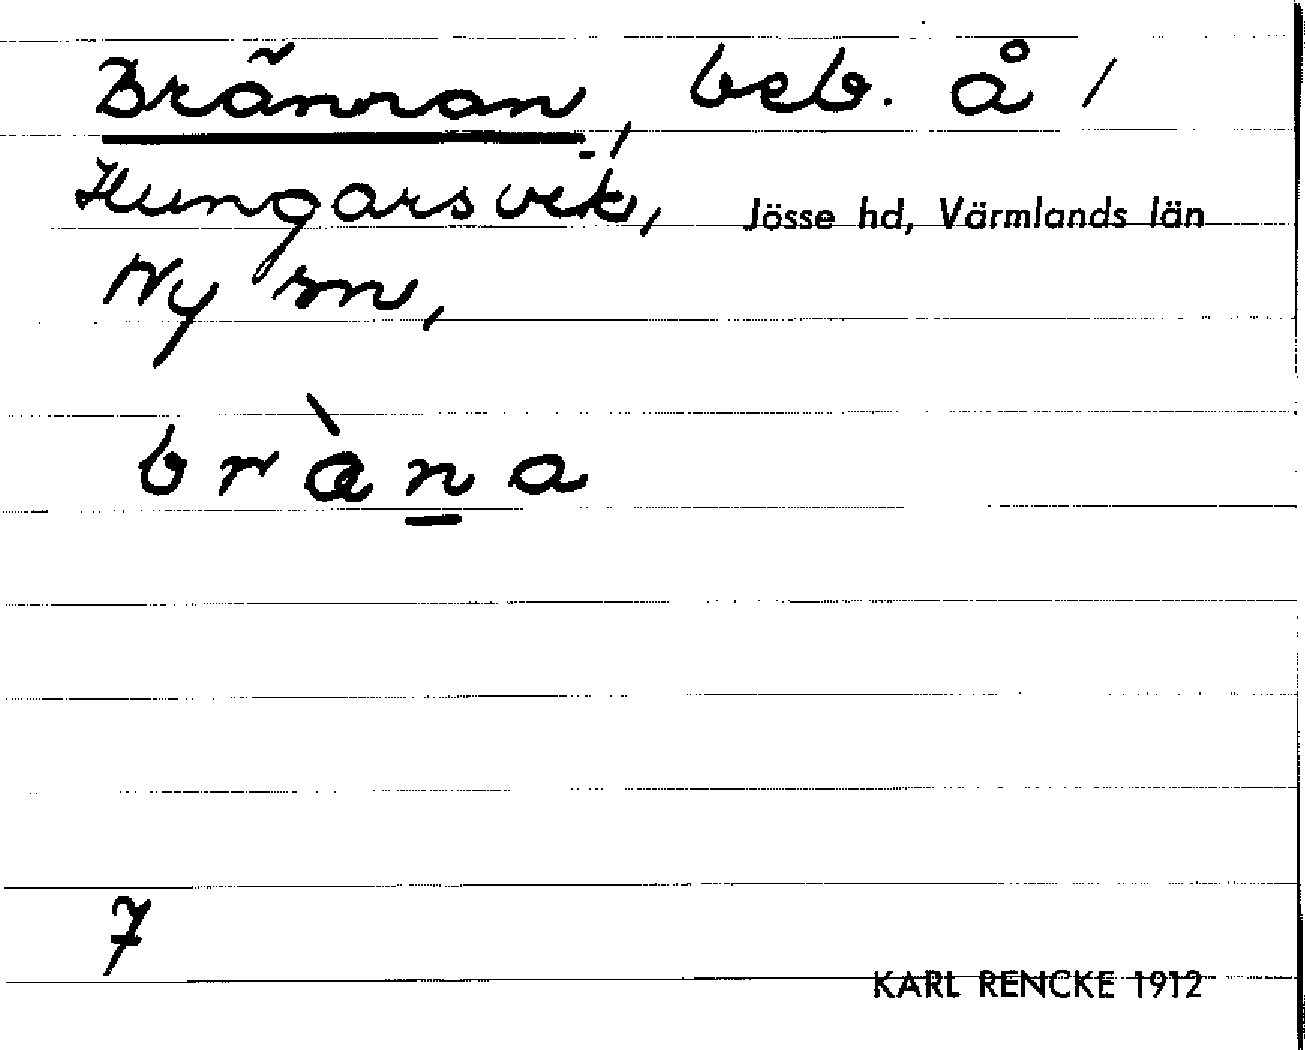 Brännan, beb. å 1/
Hungarsvik, Jösse hd, Värmlands län
Ny sn,
bræ̀na
7
KARL RENCKE 1912